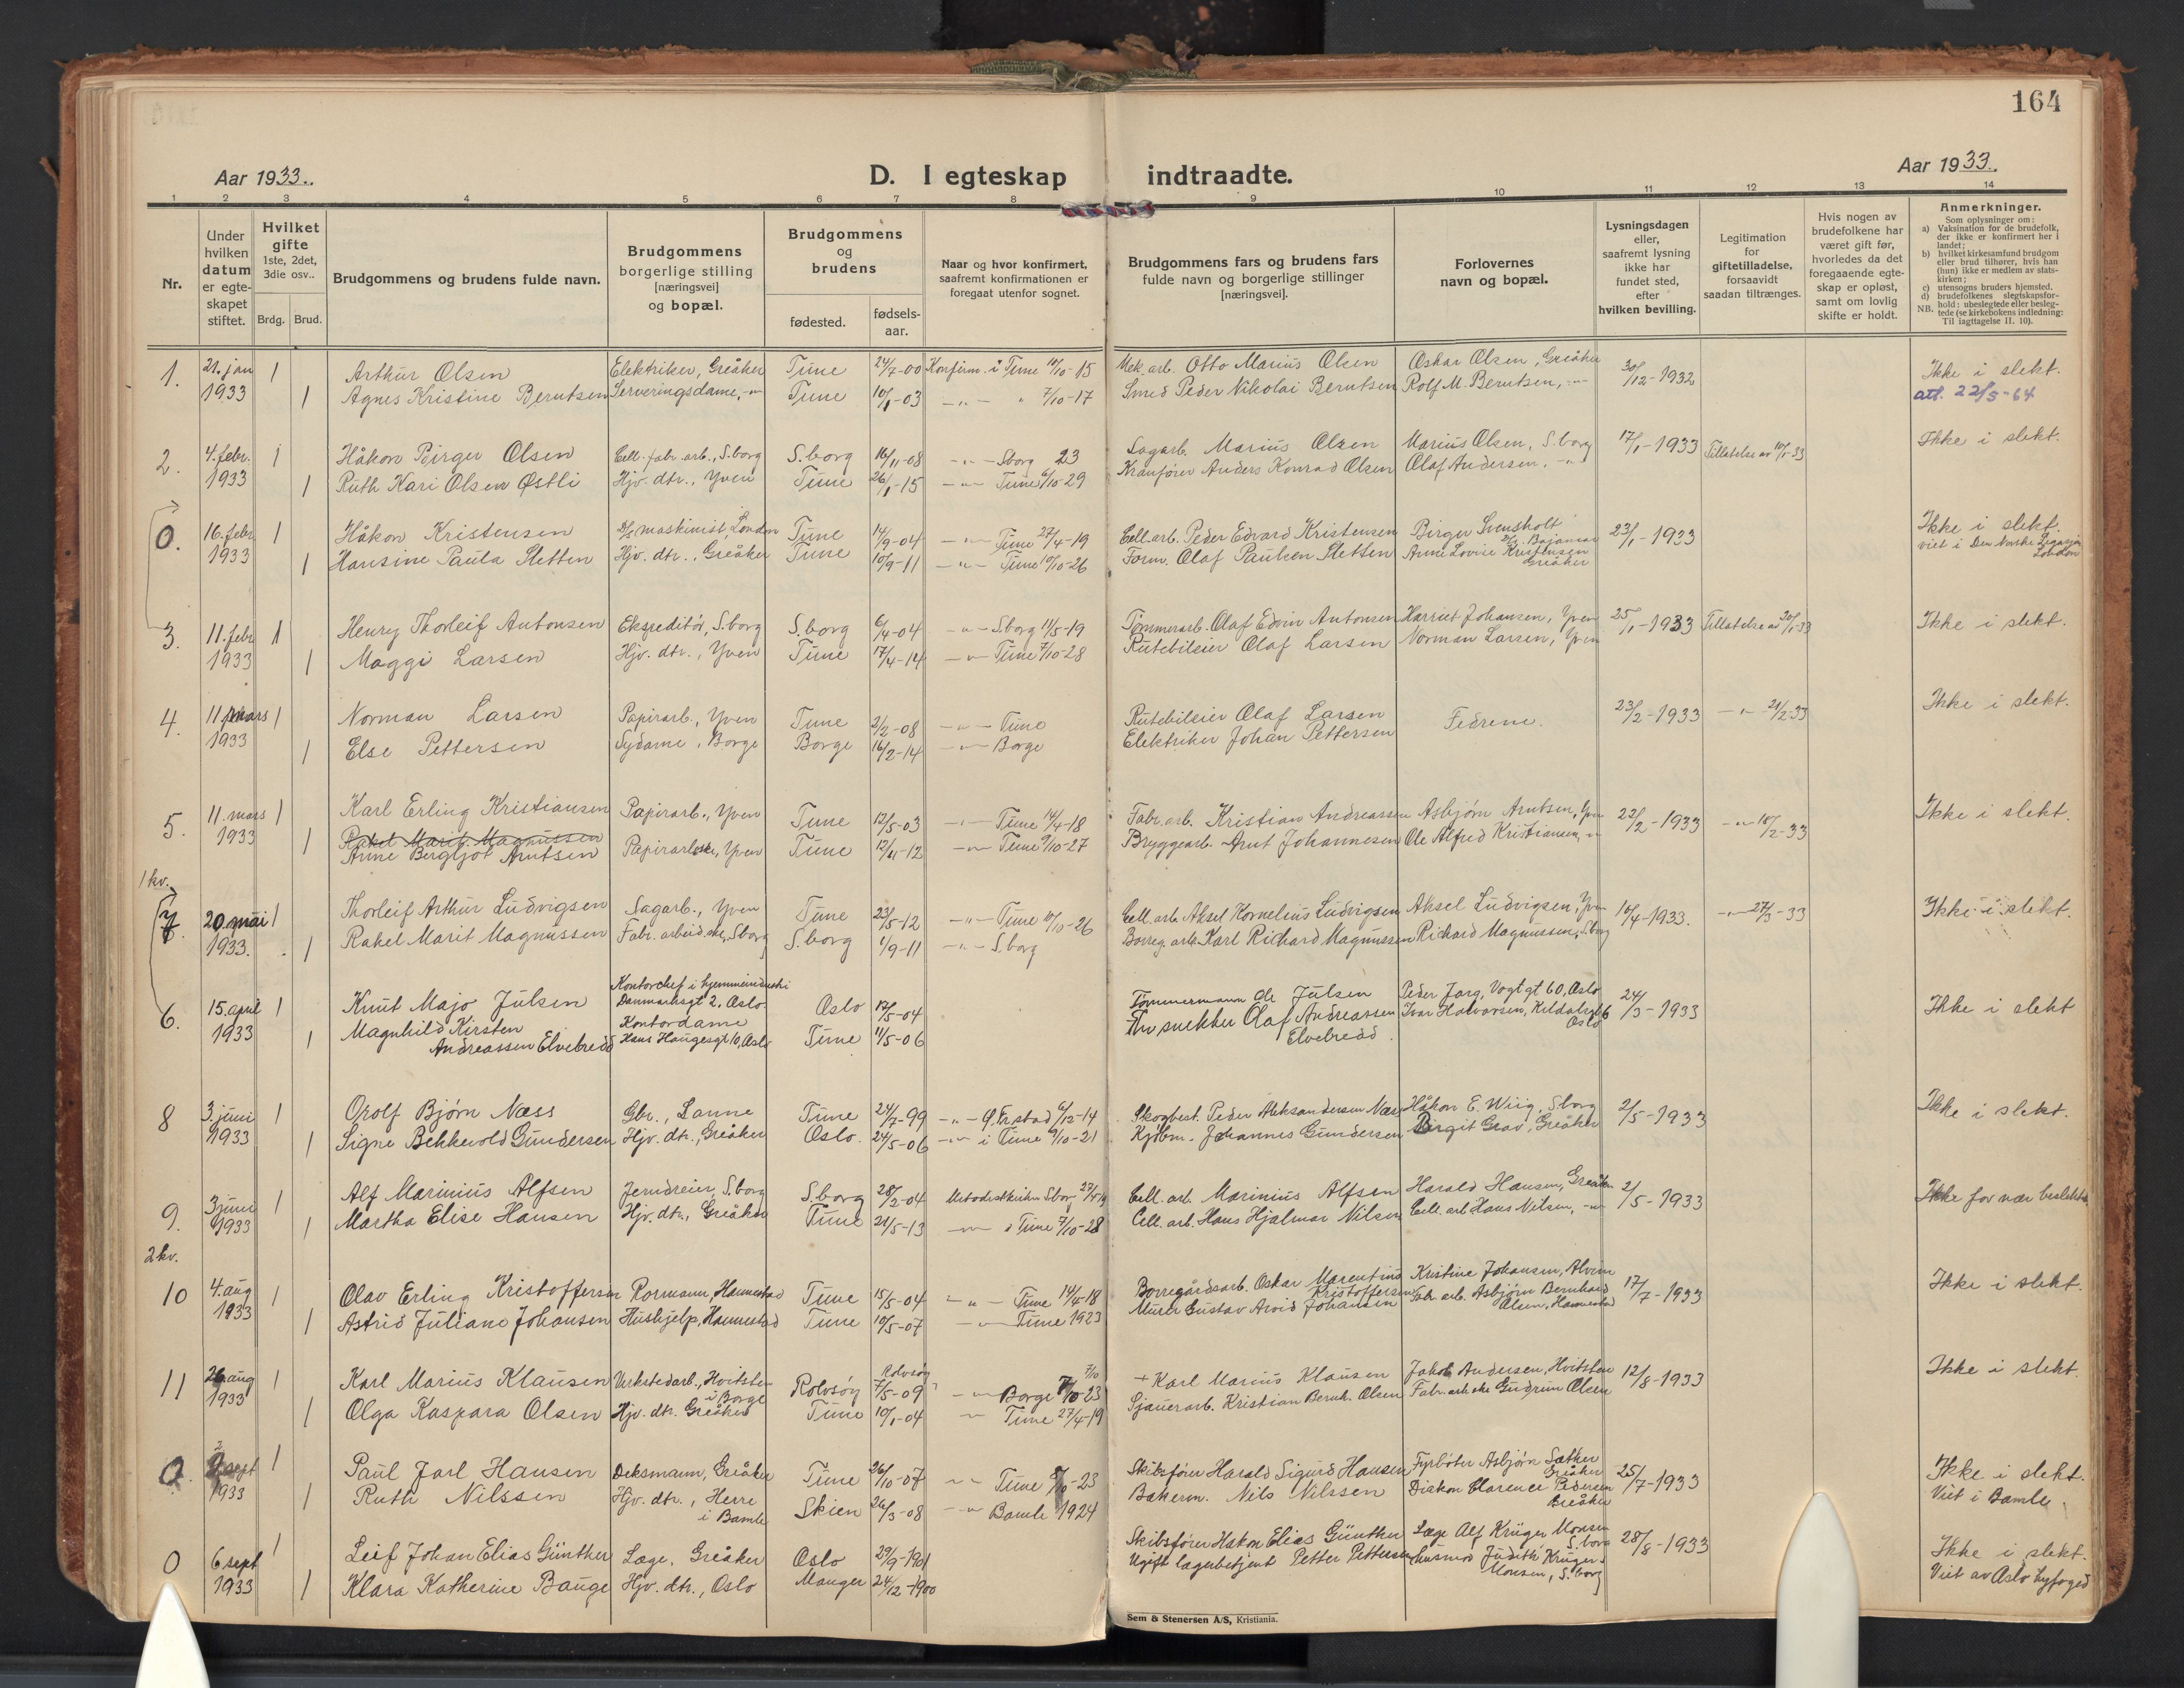 164
Aar 1933.
D. I egteskap indtraadte.
Aar 1933.
1 2 3 4 5 6 7 8 9 10 11 12 13 14
Nr.
Under hvilken datum er egte-skapet stiftet.
Hvilket gifte 1ste, 2det, 3die osv..
Brdg. Brud.
Brudgommens og brudens fulde navn.
Brudgommens borgerlige stilling [næringsvei] og bopæl.
Brudgommens og brudens
fødested.
fødsels-aar.
Naar og hvor konfirmert, saafremt konfirmationen er foregaat utenfor sognet.
Brudgommens fars og brudens fars fulde navn og borgerlige stillinger [næringsvei].
Forlovernes navn og bopæl.
Lysningsdagen eller, saafremt lysning ikke har fundet sted, efter hvilken bevilling.
Legitimation for giftetilladelse, forsaavidt saadan tiltrænges.
Hvis nogen av brudefolkene har været gift før, hvorledes da det foregaaende egte-skap er opløst, samt om lovlig skifte er holdt.
Anmerkninger.
Som oplysninger om:
a) Vaksination for de brudefolk, der ikke er konfirmert her i landet;
b) hvilket kirkesamfund brudgom eller brud tilhører, hvis han (hun) ikke er medlem av stats-kirken;
c) utensogns bruders hjemsted.
d) brudefolkenes slegtskapsfor-hold: ubeslegtede eller besleg-tede (se kirkebokens indledning: Til iagttagelse II. 10).
NB.
1. 21. jan 1 Arthur Olsen Elektriker, Greåker Tune 24/7-00 Konfirm. i Tune 10/10-15 Mek. arb. Otto Marius Olsen Oskar Olsen, Greåker 30/12-1932 Ikke i slekt.
1933 1 Agnes Kristine Berntsen Serveringsdame, -"- Tune 10/1-03 -"- " 7/10-17 Smed Peder Nikolai Berntsen Rolf M. Berntsen, -"- att. 22/5-64
2. 4. febr. 1 Håkon Birger Olsen Cell. fabr. arb., S.borg S.borg 16/11-08 -"- Sborg 23 Sagarb. Marius Olsen Marius Olsen, S.borg 17/1-1933 Tillatelse av 10/1-33 Ikke i slekt.
1933 1 Ruth Kari Olsen Østli Hjv. dtr., Yven Tune 26/1-15 -"- Tune 6/10-29 Kranfører Anders Konrad Olsen Olaf Andersen, -"-
0. 16. febr. 1 Håkon Kristensen D/S maskinist, London Tune 14/9-04 -"- Tune 27/4-19 Cell. arb. Peder Edvard Kristensen Birger Svensholt 23/1-1933 Ikke i slekt.
1933 1 Hansine Paula Sletten Hjv. dtr., Greåker Tune 10/9-11 -"- Tune 10/10-26 Form. Olaf Paulsen Sletten Anne Lovise Kristensen Greåker viet i Den Norske Legasjon London
3. 11. febr 1 Henry Thorleif Antonsen Ekspeditør, S.borg S.borg 6/4-04 -"- S.borg 11/5-19 Tømmerarb. Olaf Edvin Antonsen Harriet Johansen, Yven 25/1-1933 Tillatelse av 20/1-33 Ikke i slekt.
1933 1 Maggi Larsen Hjv. dtr., Yven Tune 17/4-14 -"- Tune 7/10-28 Rutebileier Olaf Larsen Norman Larsen, Yven
4. 11 mars 1 Norman Larsen Papirarb., Yven Tune 2/2-08 -"- Tune Rutebileier Olaf Larsen Fedrene. 23/2-1933 -"- 21/2-33 Ikke i slekt.
1933 1 Else Pettersen Sydame, Borge Borge 16/2-14 -"- Borge Elektriker Johan Pettersen
5. 11. mars 1 Karl Erling Kristiansen Papirarb., Yven Tune 12/5-03 -"- Tune 14/4-18 Fabr. arb. Kristian Andreassen Asbjørn Arntsen, Yven 22/2-1933 -"- 18/2-33 Ikke i slekt.
1933 1 Rakel Marit Magnussen
Anne Bergljot Arntsen Papirarbske, Yven Tune 12/11-12 -"- Tune 9/10-27 Bryggearb. Arnt Johannesen Ole Alfred Kristiansen, -"-
1 kv.
7. 20. mai 1 Thorleif Arthur Ludvigsen Sagarb., Yven Tune 23/5-12 -"- Tune 10/10-26 Cell. arb. Aksel Kornelius Ludvigsen Aksel Ludvigsen, Yven 10/4-1933. -"- 27/3-33 Ikke i slekt.
1933. 1 Rakel Marit Magnussen Fabr. arbeid.ske, Sborg S.borg 1/9-11 -"- S.borg Borreg. arb. Karl Richard Magnussen Richard Magnussen, S.borg
6. 15. april 1 Knut Majo Julsen Kontorchef i hjemmeindustri Danmarksgt 2. Oslo. Oslo 17/5-04 Tømmermann Ole Julsen Peder Jorg, Vogt gt 60, Oslo 24/3-1933 Ikke i slekt
1933 1 Magnhild Kirsten Andreassen Elvebredd Kontordame Hans Haugesgt 10, Oslo Tune 11/5-06 snekker Olaf Andreassen Elvebredd. Ivar Halvorsen, Oslo
8 3. juni 1 Orolf Bjørn Næss Gbr., Lanne Tune 24/7-99 -"- G. Fr.stad 6/12-14 Skogbest. Peder Aleksandersen Næss Håkon E. Wiig, S.borg 2/5-1933 Ikke i slekt.
1933 1 Signe Behkevold Gundersen Hjv. dtr., Greåker Oslo. 24/5-06 -"- i Tune 9/10-21 Kjøbm. Johannes Gundersen Birgit Grav, Greåker
9. 3 juni 1 Alf Marinius Alfsen Jerndreier, S.borg S.borg 28/2-04 Metodistkirken Sborg 27/4-19 Cell. arb. Marinius Alfsen Harald Hansen, Greåker 2/5-1933 Ikke for nær beslektet
1933 1 Martha Elise Hansen Hjv. dtr., Greåker Tune 24/5-13 -"- i Tune 7/10-28 Cell. arb. Hans Hjalmar Nilsen Cell. arb Hans Nilsen, -"-
2 kv.
10 4. aug 1 Olav Erling Kristoffersen Rormann, Hannestad Tune 15/5-04 -"- Tune 14/4-18 Borregårdsarb. Oskar Marentius Kristoffersen Kristine Johansen, Alvim 17/7-1933 Ikke i slekt.
1933 1 Astrid Juliane Johansen Hushjelp, Hannestad Tune 10/5-07 -"- Tune 1923 Murer Gustav Arvid Johansen Fabr. arb. Asbjørn Bernhard Olsen, Hannestad
11 26 aug 1 Karl Marius Klausen Verkstedarb., Hvitsten i Borge Rolvsøy Rolvsøy 7/5-09 -"- Borge 7/10 23 + Karl Marius Klausen Jakob Andersen, Hvitsten 12/8-1933 Ikke i slekt.
1933 1 Olga Kaspara Olsen Hjv. dtr. Greåker Tune 10/1-04 -"- Tune 27/4-19 Sjauerarb. Kristian Bernh. Olsen Fabr. arb.ske Gudrun Olsen
0. 2 sept 1 Paul Jarl Hansen Deksmann, Greåker Tune 26/10-07 -"- Tune 7/10-23 Skibsfører Harald Sigurd Hansen Fyrbøter Asbjørn Sæther Greåker 25/7-1933 Ikke i slekt.
1933 1 Ruth Nilssen Hjv. dtr., Herre i Bamle Skien 26/3-08 -"- Bamle 1924 Bakerm. Nils Nilssen Diakon Clarence Pedersen Greåker Viet i Bamle.
0 6. sept 1 Leif Johan Elias Günther Læge, Greåker Oslo 29/9-1901 Skibsfører Hakon Elias Günther Læge Alf Krüger Monsen S.borg 28/8-1933 Ikke i slekt.
1933 1 Klara Katherine Bauge Hjv. dtr., Oslo Manger 24/12-1900 Ugift lagerbetjent Petter Pettersen Husmor Judith Krüger Monsen, S.borg Viet av Oslo byfoged
Sem & Stenersen A/S, Kristiania.